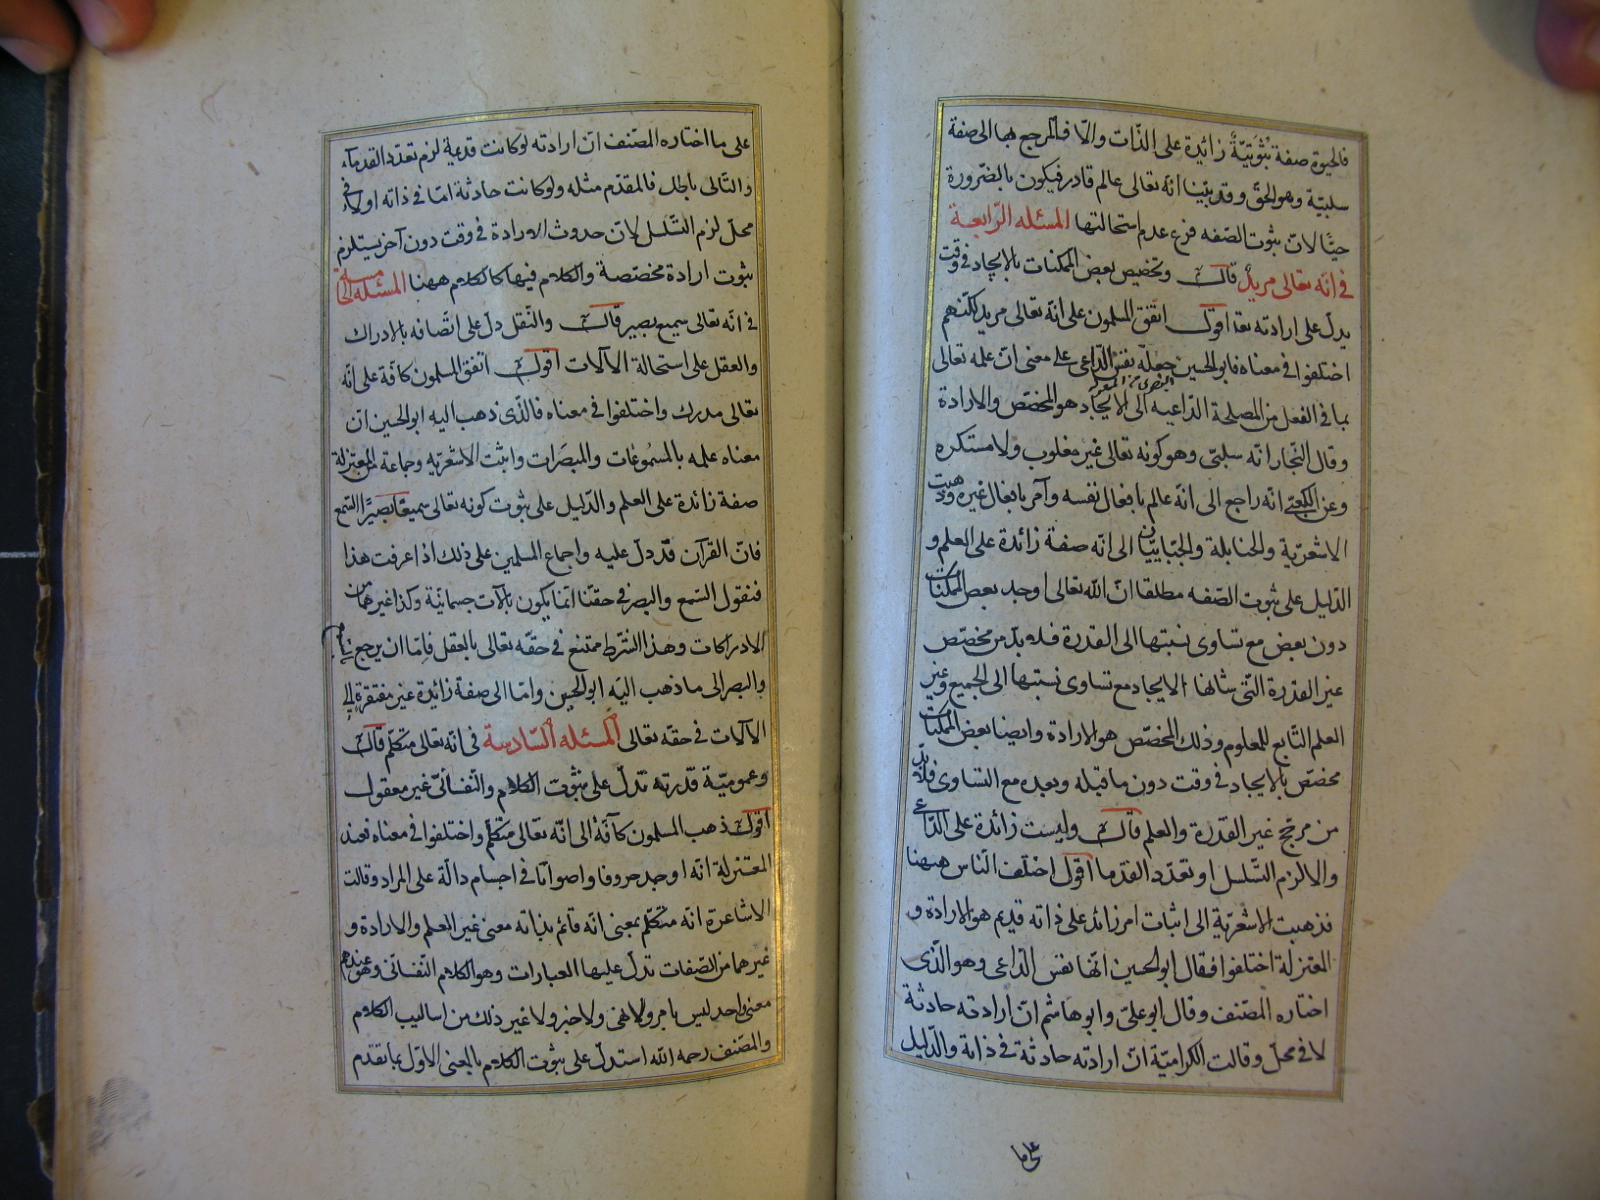 فالحيوة صفة ثبوتيّة زائدة على الذّات والّا فالمرجع بها الى صفة
سلبيّة وهو الحقّ وقد بيّنا انّه تعالى عالم قادر فيكون بالضّرورة
حيّا لانّ ثبوت الصّفه فرع عدم استحالتها المسئله الرّابعة
فى انّه تعالى مريد قال وتخصيص بعض الممكنات بالايجاد فى وقت
يدلّ على ارادته تعا اقول اتفق المسلمون على انّه تعالى مريد لكنّهم
اختلفوا فى معناه فابو الحسين جعله نفس الدّاعى على معنى انّ علمه تعالى
بما فى الفعل من المصلحة الدّاعيه الى الايجاد هو المخصّص والارادة
وقال النّجار انّه سلبىّ وهو كونه تعالى غير مغلوب ولا مستكره
وعن الكعبى انّه راجع الى انّه عالم بافعال نفسه وآمر بافعال غيره وذهبت
الاشعريّة والحنابلة والجبّائيّان الى انّه صفة زائدة على العلم و
الدّليل على ثبوت الصّفه مطلقا انّ اللّه تعالى اوجد بعض الممكنات
دون بعض مع تساوى نسبتها الى القدرة فلا بدّ من مخصّص
غير القدرة التّى شانها الايجاد مع تساوى نسبتها الى الجميع وغير
العلم التّابع للمعلوم وذلك المخصّص هو الارادة وايضا بعض الممكنات
مخصّص بالايجاد فى وقت دون ما قبله وبعده مع التساوى فلا بدّ
من مرجّح غير القدرة والعلم قال وليست زائدة على الدّاعى
والا لزم التّسلسل او تعدّد القدما اقول اختلف النّاس هيهنا
فذهبت الاشعريّة الى اثبات امر زائد على ذاته قديم هو الارادة و
المعتزلة اختلفوا فقال ابو الحسين انّها نفس الدّاعى وهو الّذى
اختاره المصّنف وقال ابو علىّ وابو هاشم انّ ارادته حادثة
لا فى محلّ وقالت الكراميّة انّ ارادته حادثة فى ذاته والدّليل
على ما
على ما اختاره المصّنف انّ ارادته لو كانت قديمة لزم تعدّد القدمآء
والتّالى باطل فالمقدّم مثله ولو كانت حادثة امّا فى ذاته او لا فى
محلّ لزم التّسلسل لانّ حدوث الارادة فى وقت دون آخر يستلزم
ثبوت ارادة مخصّصة والكلام فيها كالكلام ههنا المسئله الخامسة
فى انّه تعالى سميع بصير قال والنّقل دلّ على اتّصافه بالادراك
والعقل على استحالة الآلات اقول اتفق المسلمون كافّة على انّه
تعالى مدرك واختلفوا فى معناه فالّذى ذهب اليه ابو الحسين انّ
معناه علمه بالمسموعات والمبصَرات واثبت الاشعريّه وجماعة من المعتزلة
صفة زائدة على العلم والدّليل على ثبوت كونه تعالى سميعًا بصيرًا السّمع
فانّ القرآن قد دلّ عليه واجماع المسلمين على ذلك اذا عرفت هذا
فنقول السّمع والبصر فى حقّنا انّما يكون بالآت جسمانيّة وكذا غيرهما من
الادراكات وهذا الشّرط ممتنع فى حقّه تعالى بالعقل فامّا ان يرجع بالسمع
والبصر الى ما ذهب اليه ابو الحسين وامّا الى صفة زائدة غير مفتقرة الى
الآلات فى حقّه تعالى المسئله السّادسة فى انّه تعالى متكلّم قال
وعموميّة قدرته تدلّ على ثبوت الكلام والنّفسانىّ غير معقول
اقول ذهب المسلمون كآفّة الى انّه تعالى متكلّم واختلفوا فى معناه فعند
المعتزلة انّه اوجد حروفا واصواتا فى اجسام دالّة على المراد وقالت
الاشاعرة انّه متكلّم بمعنى انّه قائم بذاته معنى غير العلم والارادة و
غيرهما من الصّفات تدلّ عليها العبارات وهو الكلام النّفسانى وهو عندهم
معنى واحد ليس بامر ولا نهى ولا خبر ولا غير ذلك من اساليب الكلام
والمصّنف رحمه اللّه استدلّ على ثبوت الكلام بالمعنى الاوّل بما تقدم